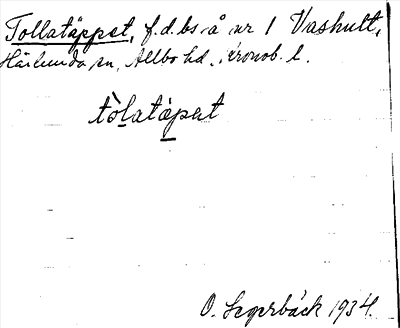 Tollatäppet, f.d. bs å nr 1 Vashult,
Härlunda sn, Allbo hd. Kronob. l.
tòlatápət
O. Segerbäck 1934.